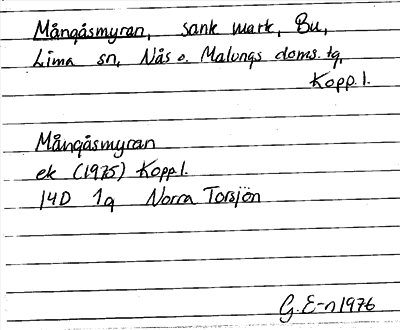 Mångåsmyran, sank mark, Bu,
Lima sn, Nås o. Malungs doms. tg,
Kopp.l.
Mångåsmyran
ek (1975) Kopp.l.
14D 1g Norra Torsjön
G. E-n 1976